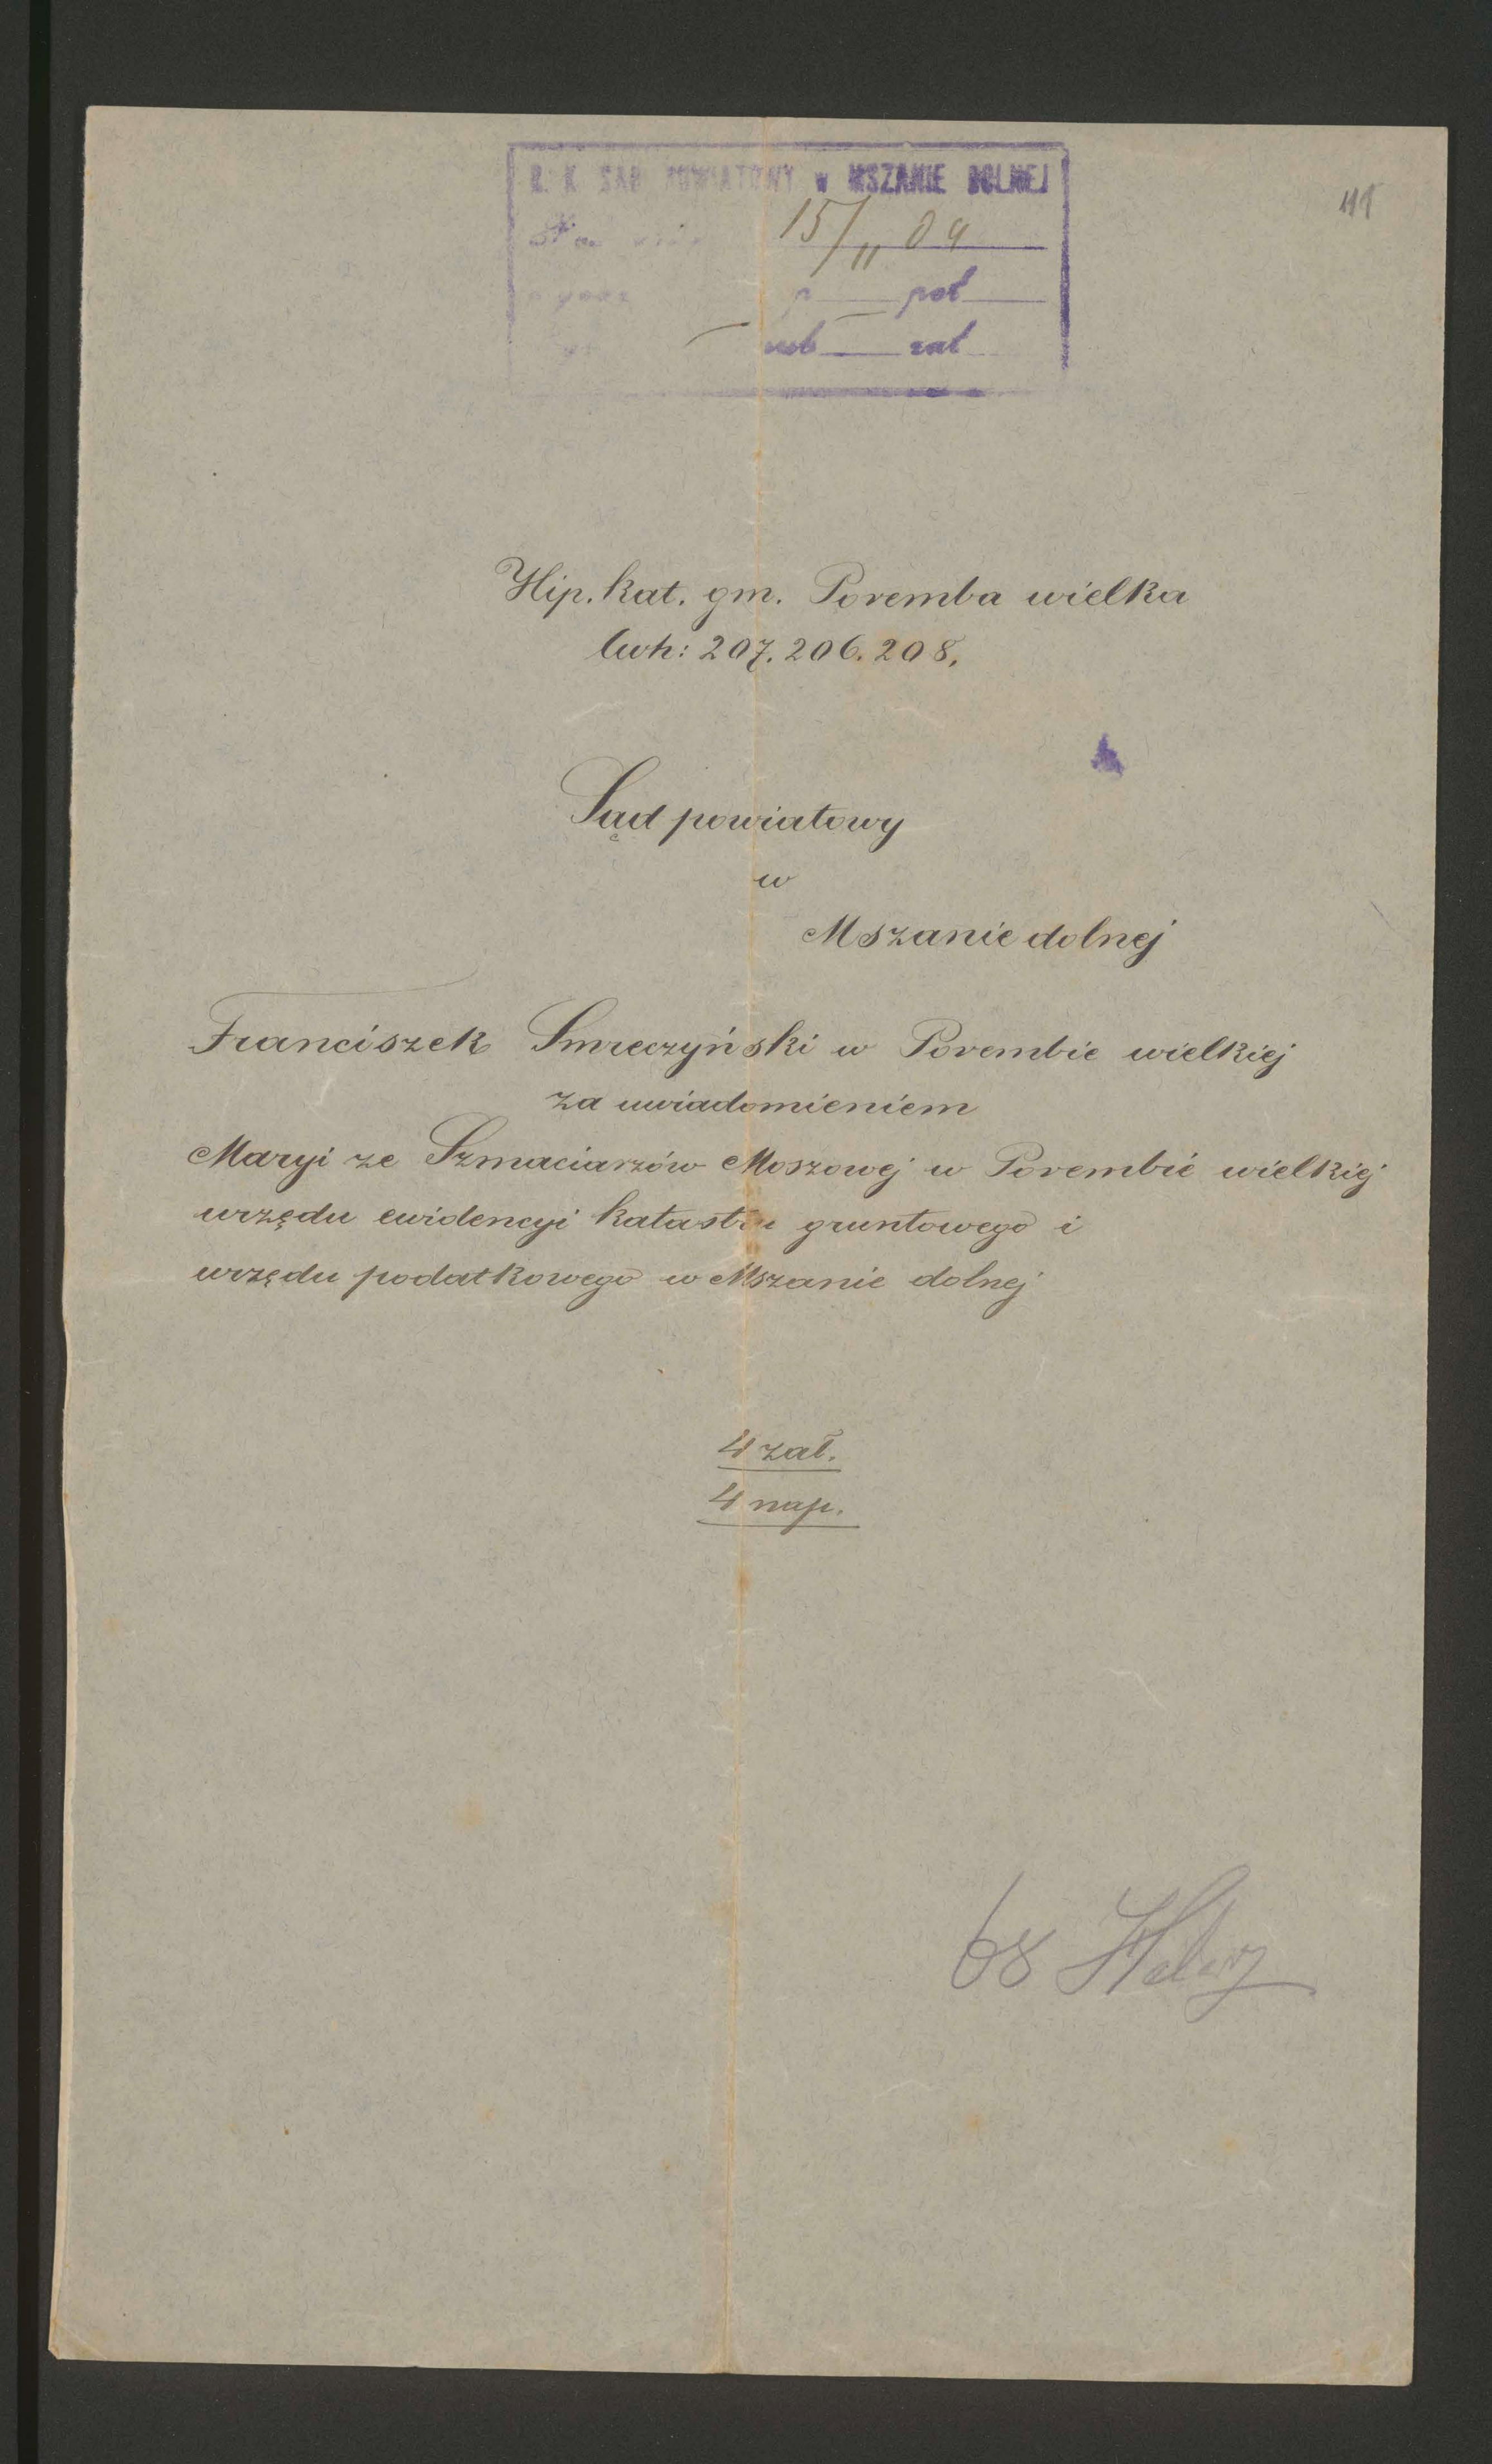 C. K. SĄD POWIATOWY w MSZANIE DOLNEJ
15/11 04
p poł
wob zał
Hip. kat. gm. Poremba wielka
lwh: 207. 206. 208.
Sąd powiatowy
w
Mszanie dolnej
Franciszek Smreczyński w Porembie wielkiej
za uwiadomieniem
Maryi ze Szmaciarzów Moszowej w Porembie wielkiej
urzędu ewidencyi katastru gruntowego i
urzędu podatkowego w Mszanie dolnej
4 zał.
4 nap.
68